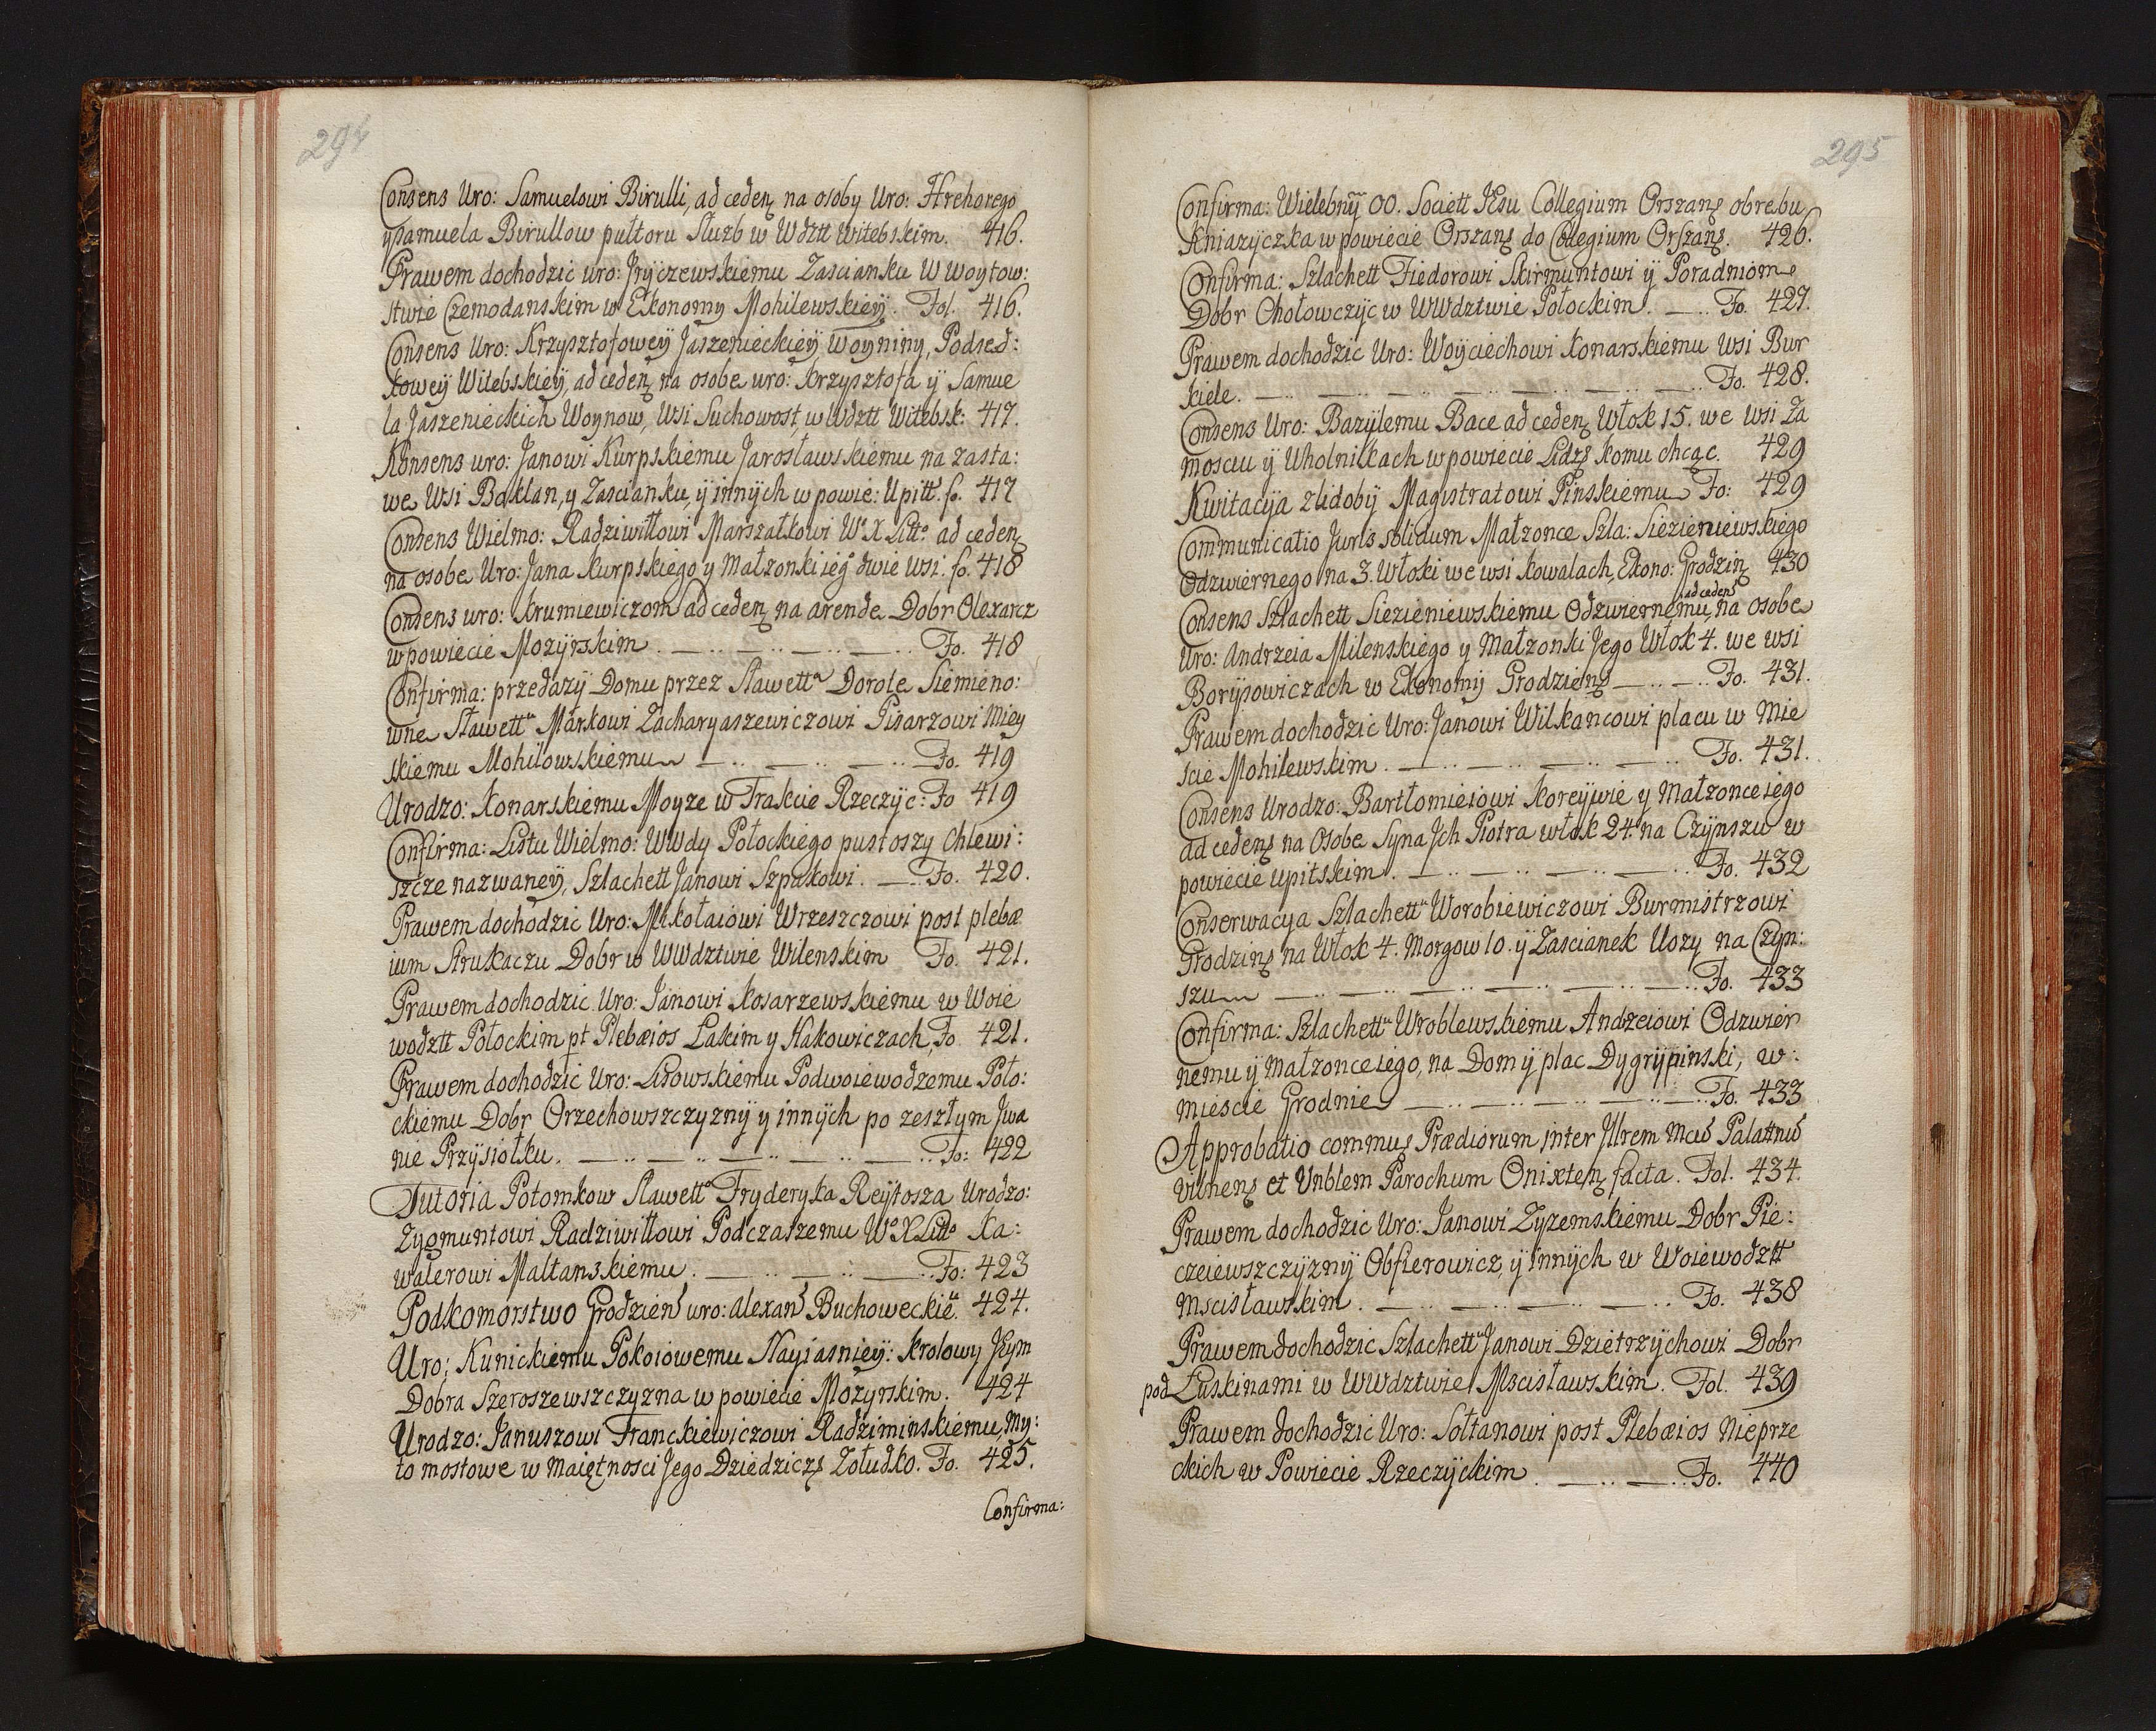 294
Consens Uro: Samuelowi Birulli, ad ceden na osoby Uro: Hrehorego
y Samuela Birullow pułtoru Służb w Wdztt Witebskim. 416.
Prawem dochodzić uro: Jryczewskiemu Zascianku W Woytow:
stwie Czemodanskim w Ekonomy Mohilewskieÿ. Fol. 416.
Consens Uro: Krzysztofoweÿ Jaszenieckieÿ Woyniny, Podsęd:
koweÿ Witebskieÿ, ad ceden na osobe uro: Krzysztofa ÿ Samue
la Jaszenieckich Woynow, Wsi Suchowost, w Wdztt Witebsk: 417.
Konsens uro: Janowi Kurpskiemu Jarosławskiemu na zasta:
we Wsi Boklan, y Zascianku, ÿ innÿch w powie: Upitt. fo. 417
Consens Wielmo: Radziwiłłowi Marszałkowi W° X Litt° ad ceden
na osobe Uro: Jana Kurpskiego y Małzonki ieg° dwie wsi. fo. 418
Consens uro: Krumiewiczom ad ceden na arende Dobr Olexarcz
w powiecie Mozÿrskim. Fo. 418
Confirma: przedazÿ Domu przez Sławettᵃ Dorote Siemieno:
wne Sławettᵘ Markowi Zacharyaszewiczowi Pisarzowi Miey
skiemu Mohilowskiemu Fo. 419
Urodzo: Konarskiemu Moyze w Trakcie Rzeczÿc: Fo 419
Confirma: Listu Wielmo: WWdy Połockiego pustoszy Chlewi:
szcze nazwaneÿ, Szlachett Janowi Szpakowi. Fo. 420.
Prawem dochodzić Uro: Mikołaiowi Wrzeszczowi post plebæ
ium Strukaczu Dobr w WWdztwie Wilenskim Fo. 421.
Prawem dochodzić Uro: Janowi Kosarzewskiemu w Woie
wodztt Połockim pt Plebæios Łakim y Hakowiczach, Fo. 421.
Prawem dochodzić Uro: Lisowskiemu Podwoiewodzemu Poło:
ckiemu Dobr Orzechowszczyznÿ y innÿch po zeszłym Jwa
nie Przysiołku. Fo: 422
Tutoria Potomkow Sławettᵒ Fryderyka Reÿtosza Urodzo:
Zygmuntowi Radziwiłłowi Podczaszemu W° X Litt° Ka:
walerowi Maltanskiemu. Fo: 423
Podkomorstwo Grodzien uro: Alexan Buchoweckieᵘ. 424.
Uro: Kunickiemu Pokoiowemu Nayiasnieÿ: Krolowy Jeym
Dobra Szeroszewszczyzna w powiecie Mozyrskim. 424
Urodzo: Januszowi Franckiewiczowi Radziminskiemu, My:
to mostowe w Maiętnosci Jego Dziedzicz Zołudko. Fo. 425.
Confirma:
295
Confirma: Wielebnÿ OO. Societt Jesu Collegium Orszan obrebu
Kniazÿczka w powiecie Orszan do Collegium Orszan. 426.
Confirma: Szlachett Fiedorowi Skirmuntowi ÿ Poradniom
Dobr Chołowczÿc w WWdztwie Połockim. Fo. 427.
Prawem dochodzić Uro: Woÿciechowi Konarskiemu Wsi Bur
kiele. Fo. 428.
Consens Uro: Bazÿlemu Bace ad ceden Włok 15. we Wsi Za
mosciu ÿ Uholnikach w powiecie Lidz komu chcąc. 429
Kwitacÿa z lidobÿ Magistratowi Pinskiemu Fo: 429
Communicatio Juris solidum Małzonce Szla: Siezieniewskiego
Odzwiernego na 3. Włoki we wsi Kowalach, Ekono: Grodzin 430
Consens Szlachett Siezieniewskiemu Odzwiernemu, ad ceden na osobe
Uro: Andrzeia Milenskiego y Małzonki Jego Włok 4. we wsi
Borÿsowiczach w Ekonomÿ Grodzien Fo. 431.
Prawem dochodzić Uro: Janowi Wilkancowi placu w Mie
scie Mohilewskim. Fo. 431.
Consens Urodzo: Bartłomieiowi Koreÿwie y Małzonce iego
ad ceden na Osobe Syna Jch Piotra włok 24. na Czÿnszu w
powiecie upitskim. Fo. 432
Conserwacya Szlachettᵘ Worobiewiczowi Burmistrzowi
Grodzin na Włok 4. Morgow 10. ÿ Zascianek Uozy na Czyn:
szu Fo. 433
Confirma: Szlachettᵘ Wroblewskiemu Andzeiowi Odzwier
nemu ÿ Małzonce iego, na Dom ÿ plac Dygrÿpinski, w:
miescie Grodnie Fo. 433
Approbatio commu Prædiorum inter Jllrem Mcũ Palattnũ
Vilnen et Vnblem Parochum Onixten facta. Fol. 434.
Prawem dochodzić Uro: Janowi Zyzemskiemu Dobr Pie:
czeiewszczÿznÿ Obfierowicz, ÿ innÿch w Woiewodztt
Mscisławskim. Fo. 438
Prawem dochodzić Szlachettᵘ Janowi Dzietrzÿchowi Dobr
pod Łuskinami w WWdztwie Mscisławskim. Fol. 439
Prawem dochodzić Uro: Sołtanowi post Plebæios Nieprze
ckich w Powiecie Rzeczÿckim. Fo. 440